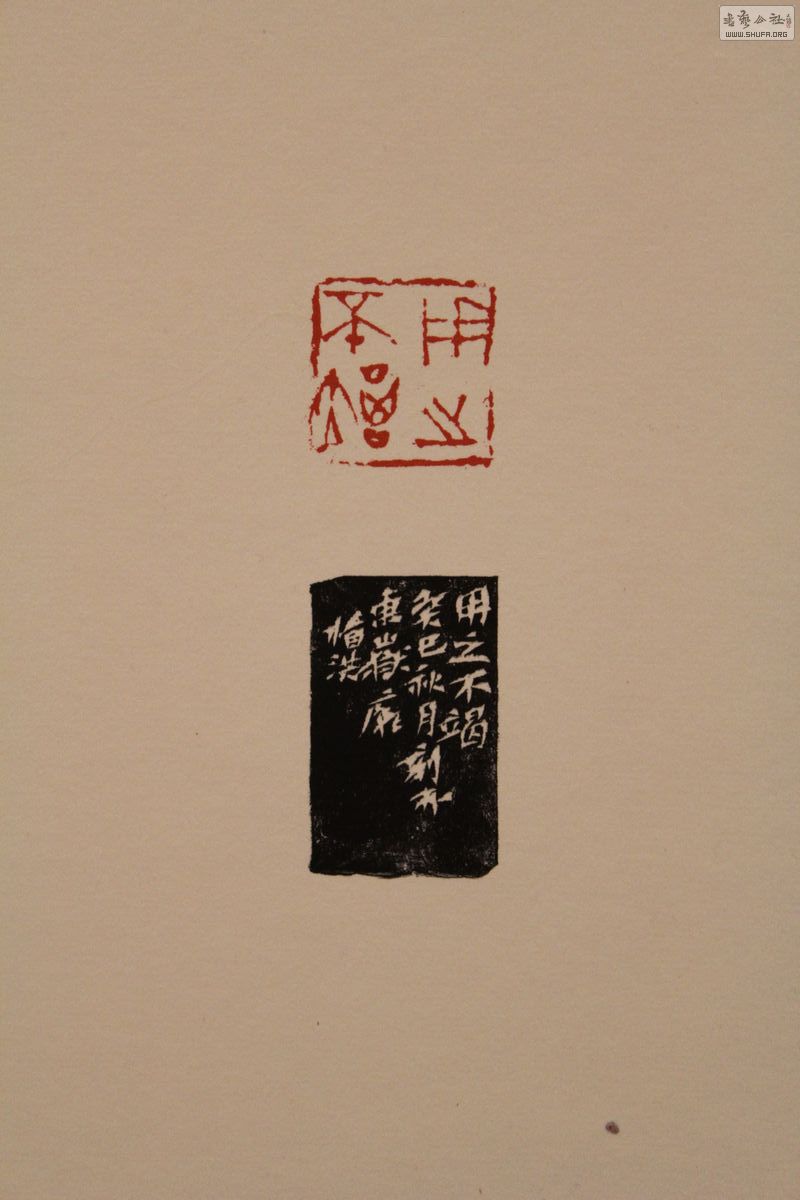 书艺公社
WWW.SHUFA.ORG
用之
不竭
用之不竭
癸巳秋月刻於
東嶽廟
惜洪